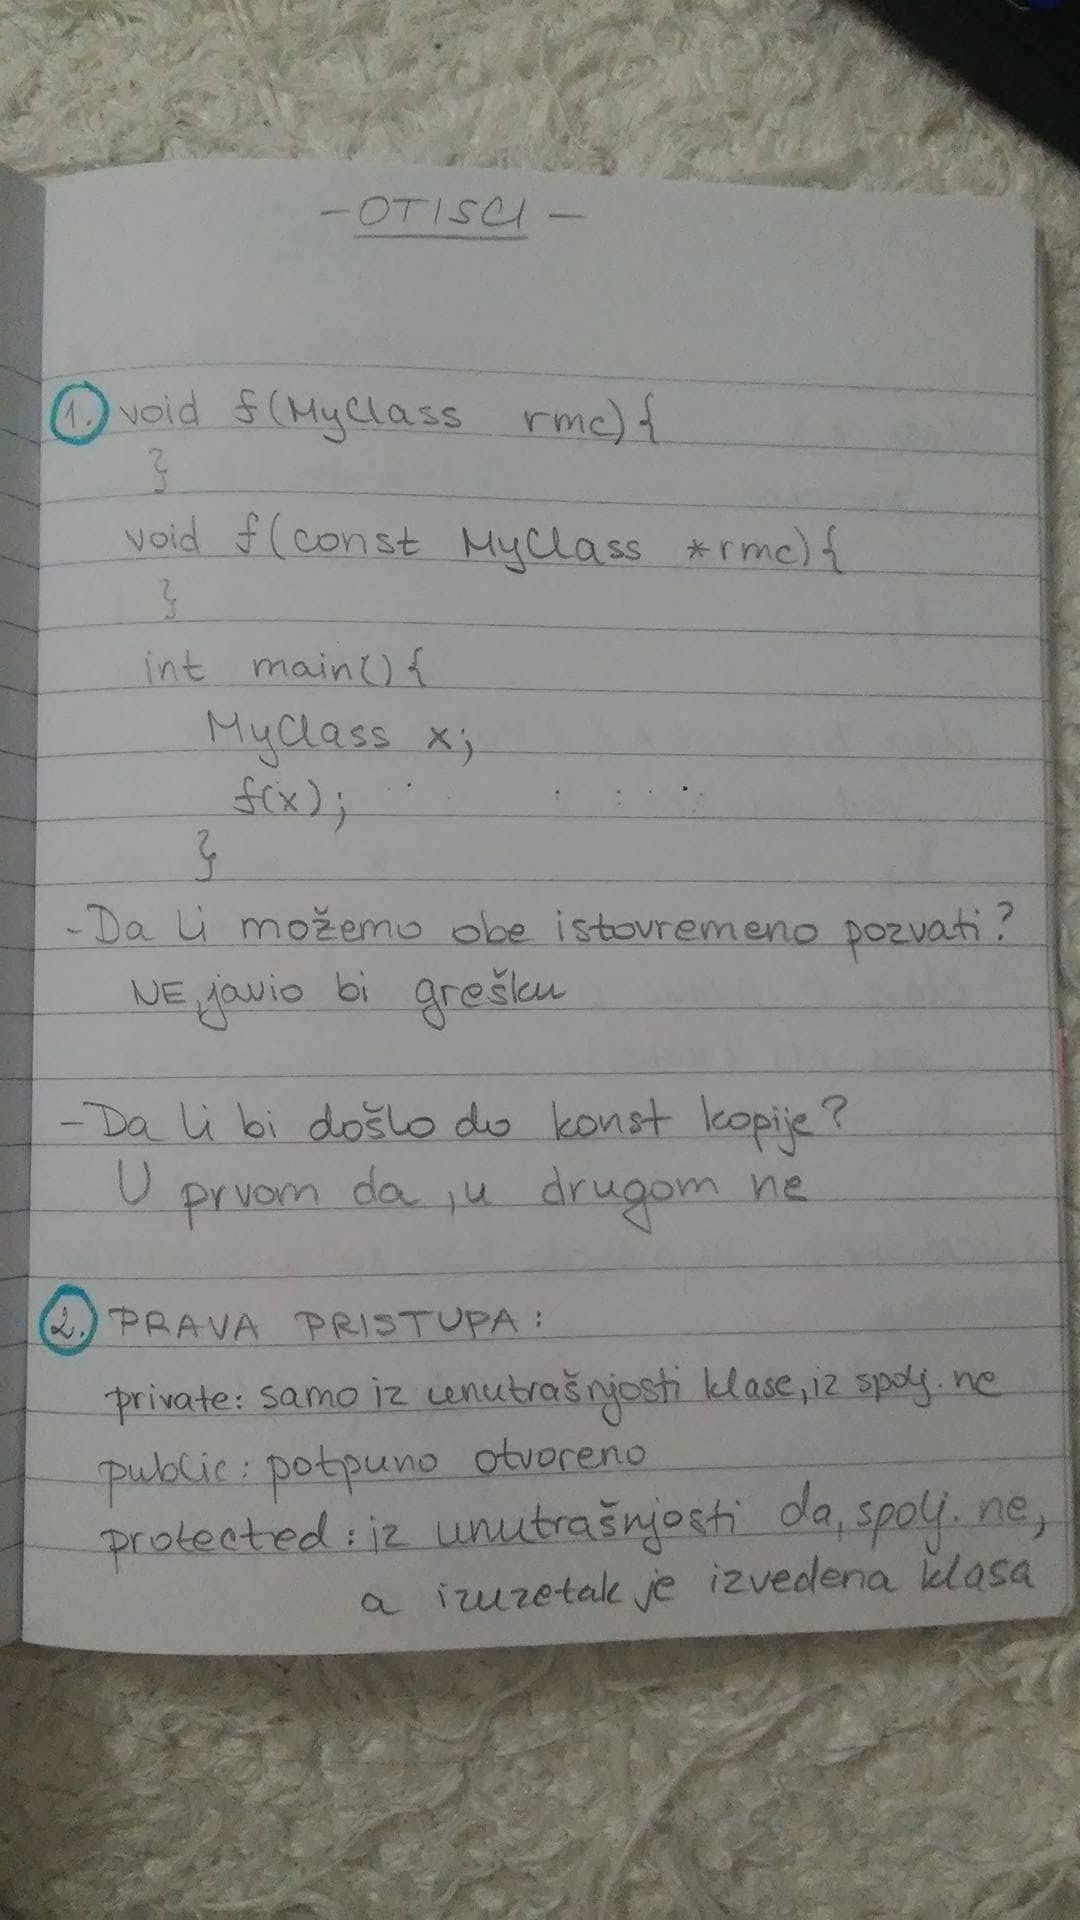 - OTISCI -
1. void f(MyClass rmc){
}
void f(const MyClass *rmc){
}
int main(){
MyClass x;
f(x);
}
- Da li možemo obe istovremeno pozvati?
NE, javio bi grešku
- Da li bi došlo do konst kopije?
U prvom da, u drugom ne
2. PRAVA PRISTUPA:
private: samo iz unutrašnjosti klase, iz spolj. ne
public: potpuno otvoreno
protected: iz unutrašnjosti da, spolj. ne,
a izuzetak je izvedena klasa